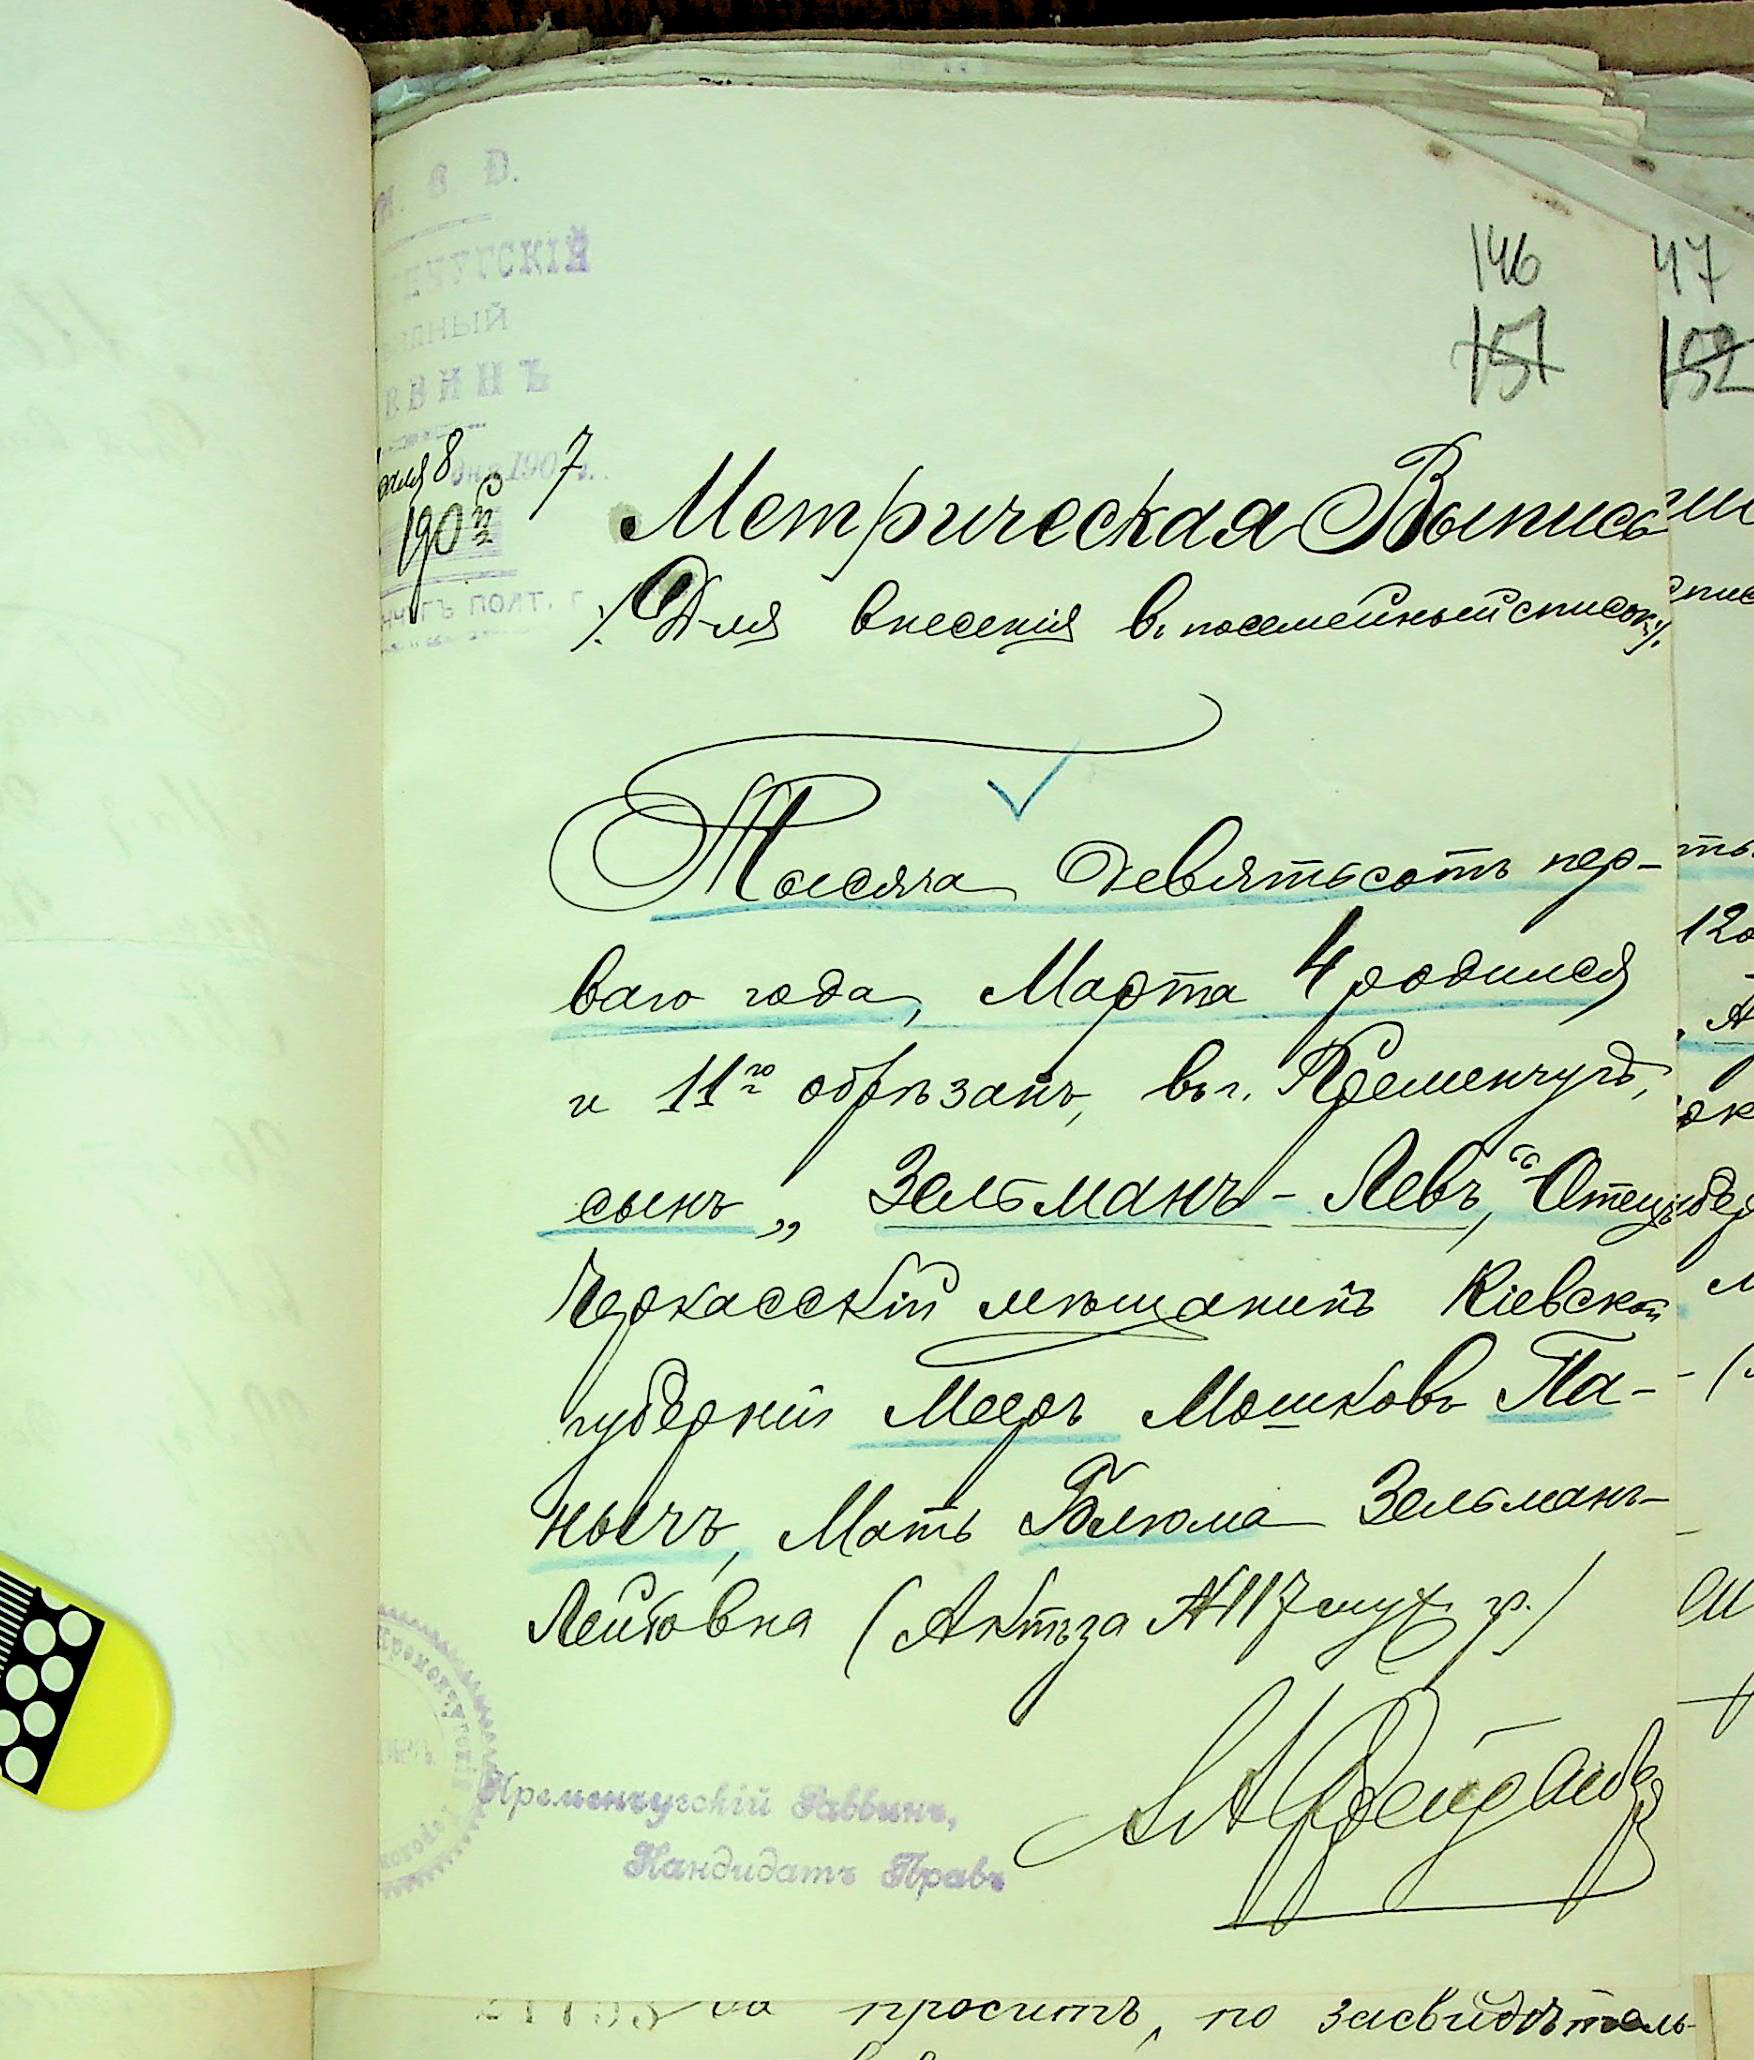 В. Д.
ЧУГСКІЙ
ВВИНЪ
8 дня 1907 г.
190
ПОЛТ. Г
146
151
47
152
Метрическая Выпись
/. Для внесенія въ посемейный список ./
Тысяча девятьсотъ пер-
ваго года, Марта 4 родился
и 11го обрѣзанъ, въ г. Кременчугѣ,
сынъ „Зельманъ-Левъ," Отецъ
Черкасскій мѣщанинъ Кіевской
губерніи Мееръ Мошковъ Па-
нычъ, Мать Блюма Зельманъ-
Лейбовна (Актъ за №117 муж. гр.)
Кременчугскій
Кременчугскій Раввинъ,
Кандидатъ Правъ
проситъ, по засвидѣтель-